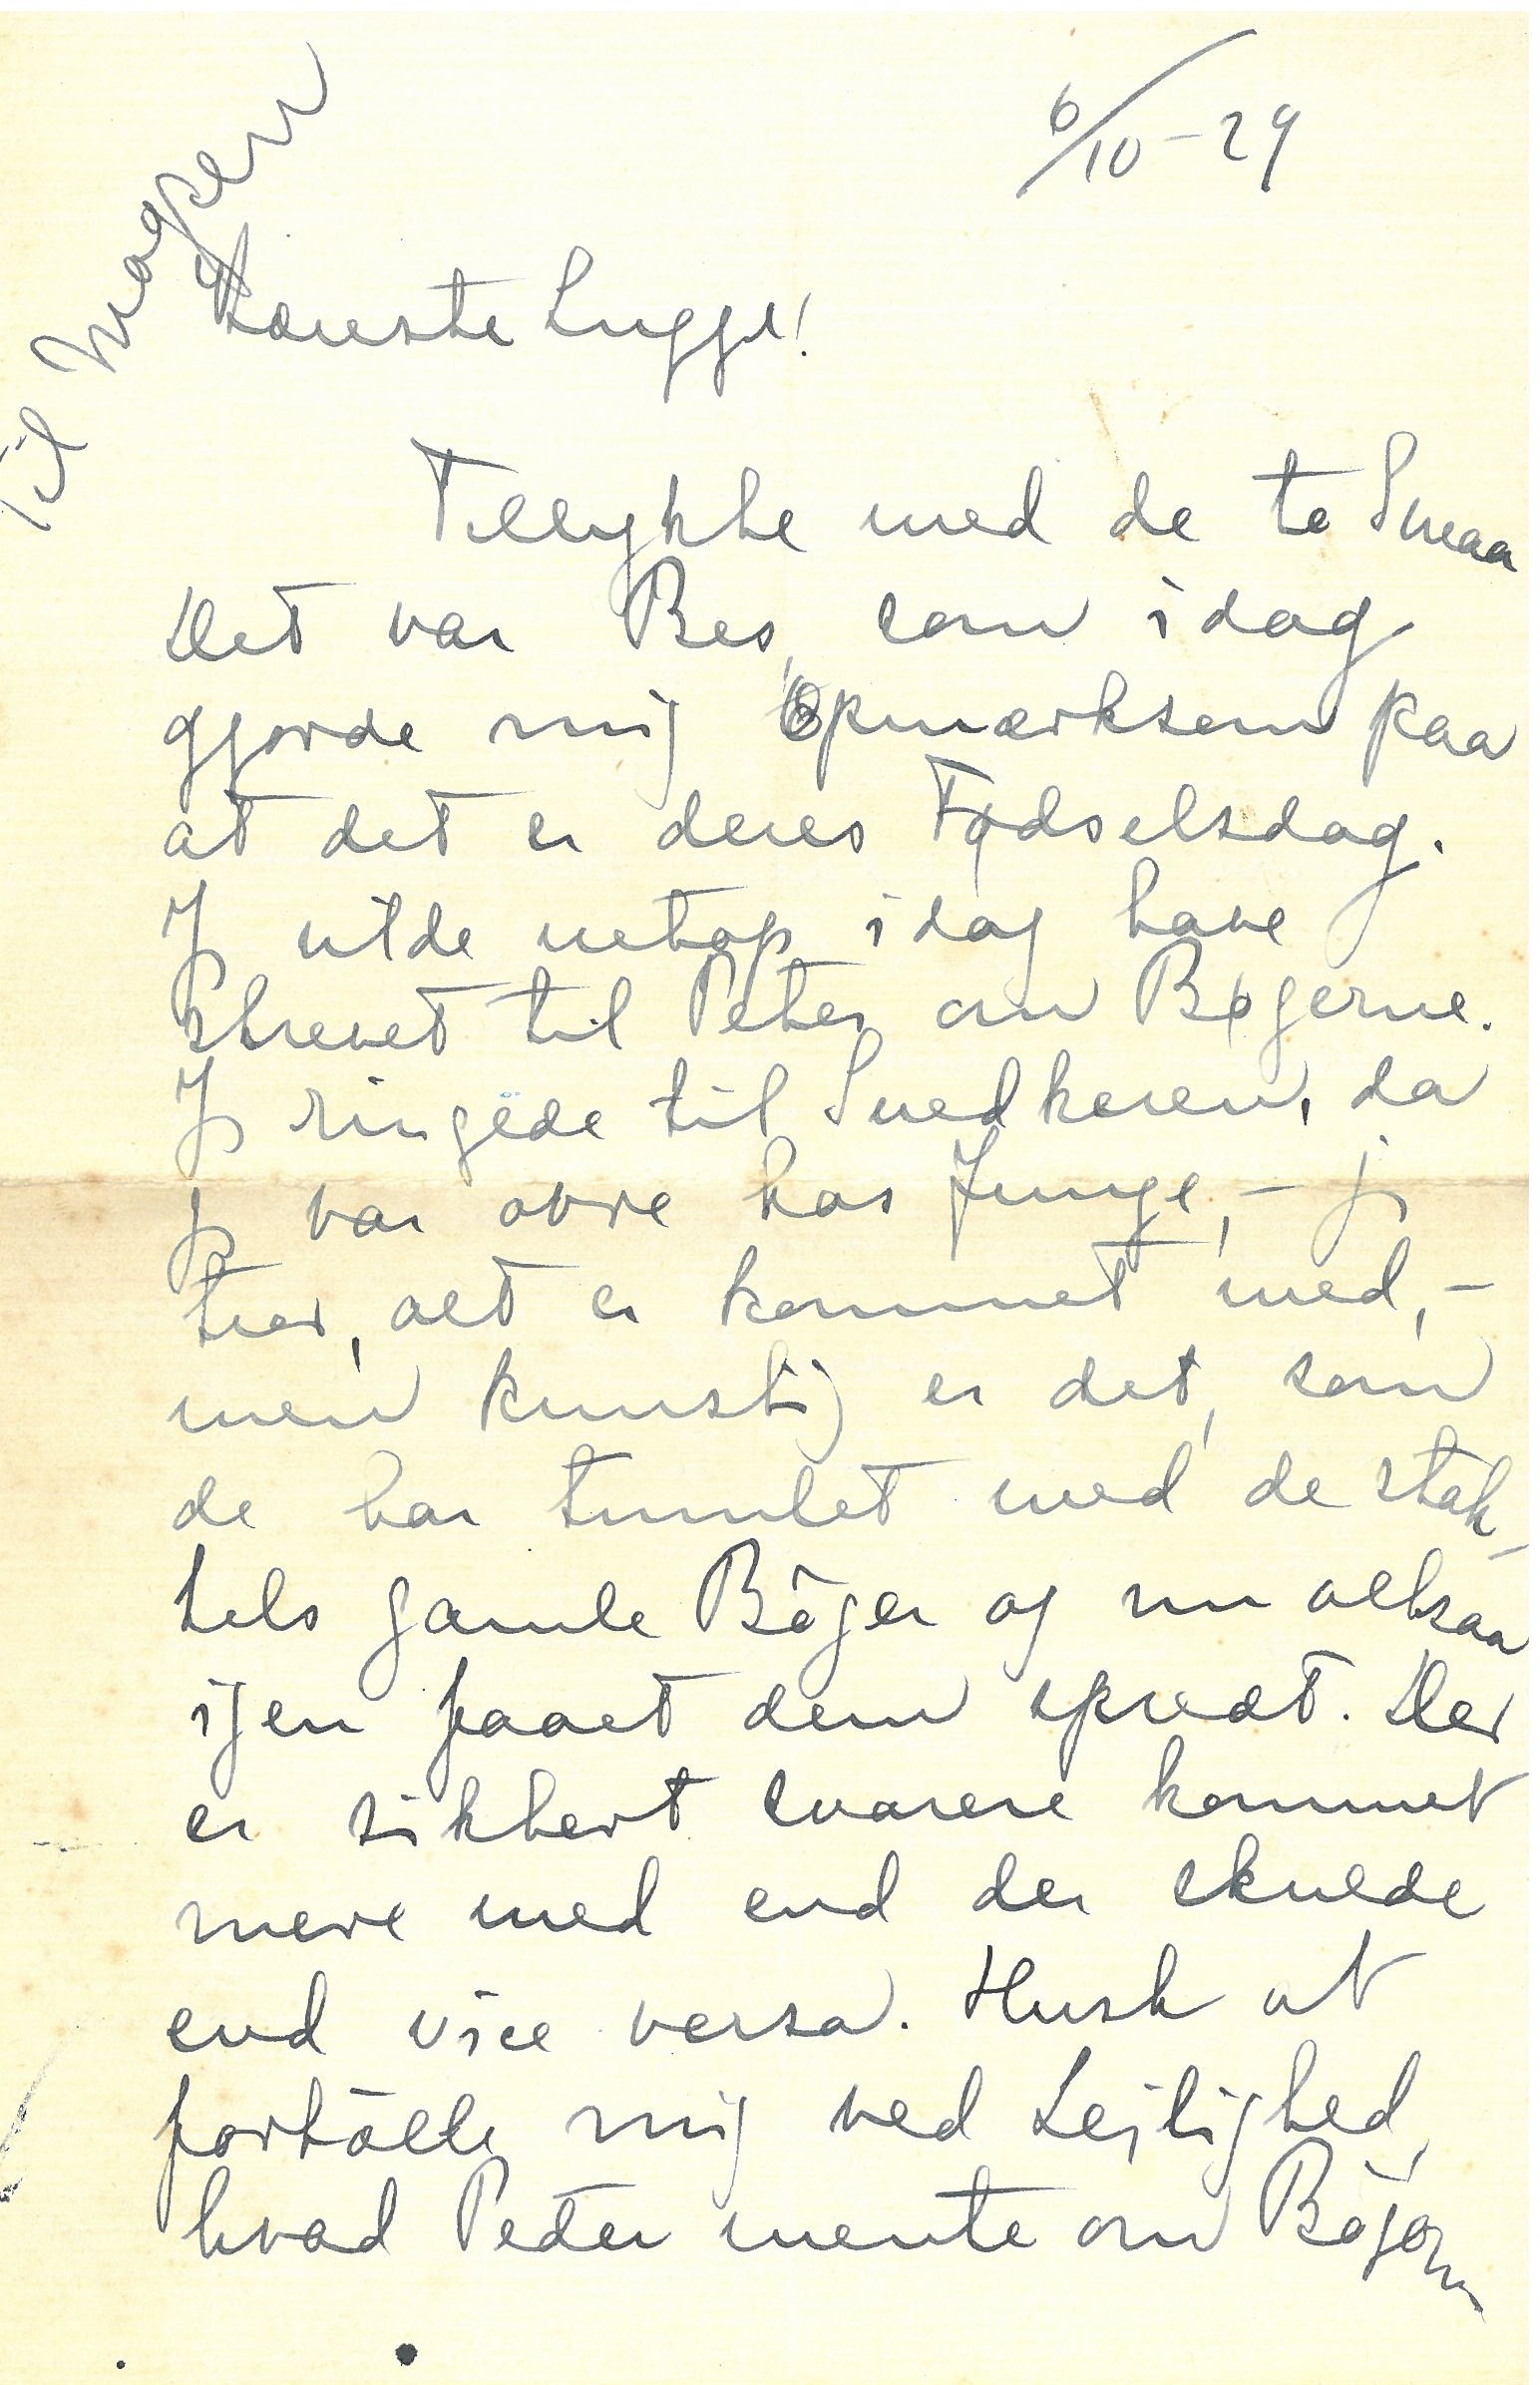 6/10 - 29
Til Mogens
Kæreste Lugge!
Tillykke med de to Smaa
Det var Bes, som idag
gjorde mig Opmærksom paa
at det er deres Fødselsdag.
Jg vilde netop idag have
skrevet til Peter om Bøgerne.
Jg ringede til Snedkeren, da
jg var ovre hos Junge, - jg
tror, alt er kommet med, -
men kunstig er det, som
de har tumlet med de stak-
kels gamle Bøger og nu altsaa
igen faaet dem spredt. Der
er sikkert snarere kommet
mere med end der skulde
end vice versa. Husk at
fortælle mig ved Lejlighed,
hvad Peter mente om Bøgern